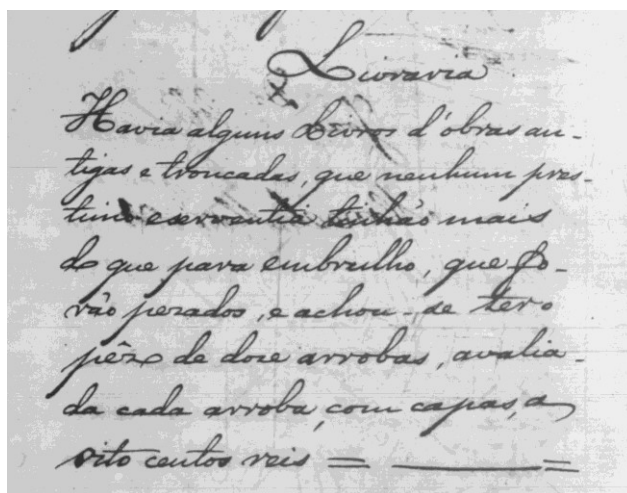 Livraria
Havia alguns Livros d'obras an-
tigas e troncadas, que nenhum pres-
timo e serventia tinhão mais
do que para embrulho, que fo-
rão pezados, e achou-se ter o
pêzo de doze arrobas, avalia-
da cada arroba, com capas, a
oito centos reis = ——— =